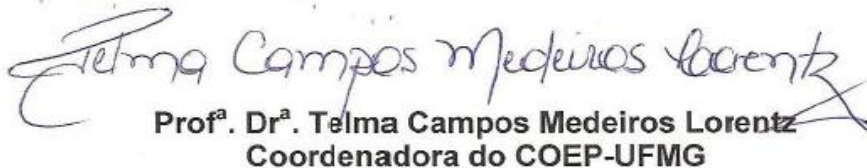 Telma Campos Medeiros Lorentz
Profª. Drª. Telma Campos Medeiros Lorentz
Coordenadora do COEP-UFMG